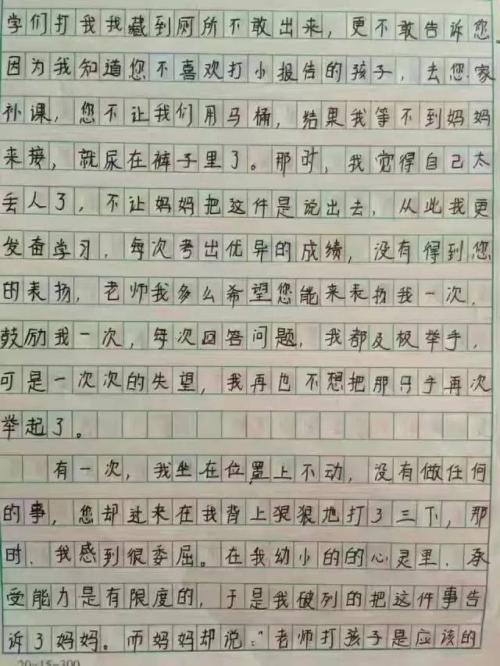 学们打我我藏到厕所不敢出来，更不敢告诉您
因为我知道您不喜欢打小报告的孩子，去您家
补课，您不让我们用马桶，结果我等不到妈妈
来接，就尿在裤子里了。那时，我觉得自己太
丢人了，不让妈妈把这件是说出去，从此我更
发奋学习，每次考出优异的成绩，没有得到您
的表扬，老师我多么希望您能来表扬我一次，
鼓励我一次，每次回答问题，我都及极举手，
可是一次次的失望，我再也不想把那只手再次
举起了。
有一次，我坐在位置上不动，没有做任何
的事，您却过来在我背上狠狠地打了三下，那
时，我感到很委屈。在我幼小的的心灵里，承
受能力是有限度的，于是我破列的把这件事告
诉了妈妈。而妈妈却说："老师打孩子是应该的
20×15=300